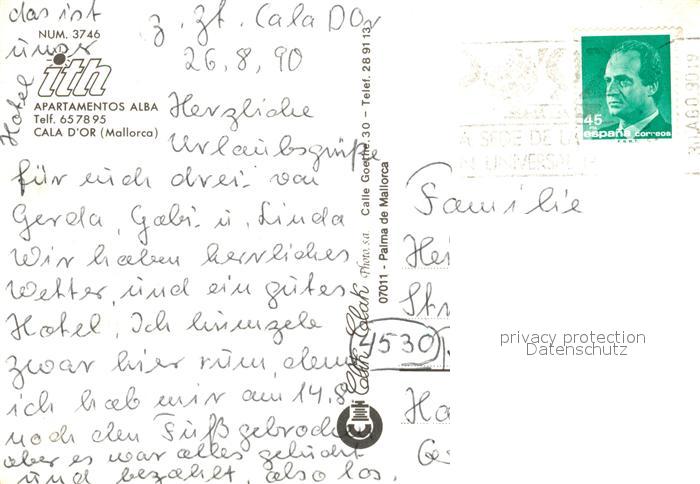 das ist
unser
Hotel
NUM. 3746
ith
APARTAMENTOS ALBA
Telf. 657895
CALA D'OR (Mallorca)
z. Zt. Cala D'Or
26.8.90
Herzliche
Urlaubsgrüße
für euch drei von
Gerda, Gabi u. Linda
Wir haben herrliches
Wetter, und ein gutes
Hotel, Ich humpele
zwar hier rum, denn
ich hab mir am 14.8.
noch den Fuß gebrochen,
aber es war alles gebucht
und bezahlt, also los.
Photo, s.a. Calle Goethe, 30 – Telef. 28 91 13
07011 - Palma de Mallorca
45
españa correos
F.N.M.T.
SEDE DE LA
UNIVERSAL
AGO 90 19
Familie
Hei
Str
4530
Ha
Ge
privacy protection
Datenschutz